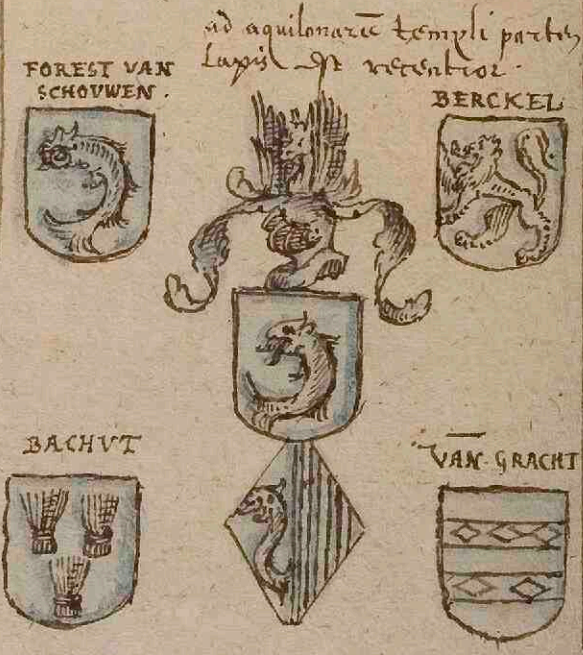 ad aquilonarē templi partem
Lapis est recentior.
FOREST VAN
SCHOVWEN.
BERCKEL
BACHVT
VAN. GRACHT